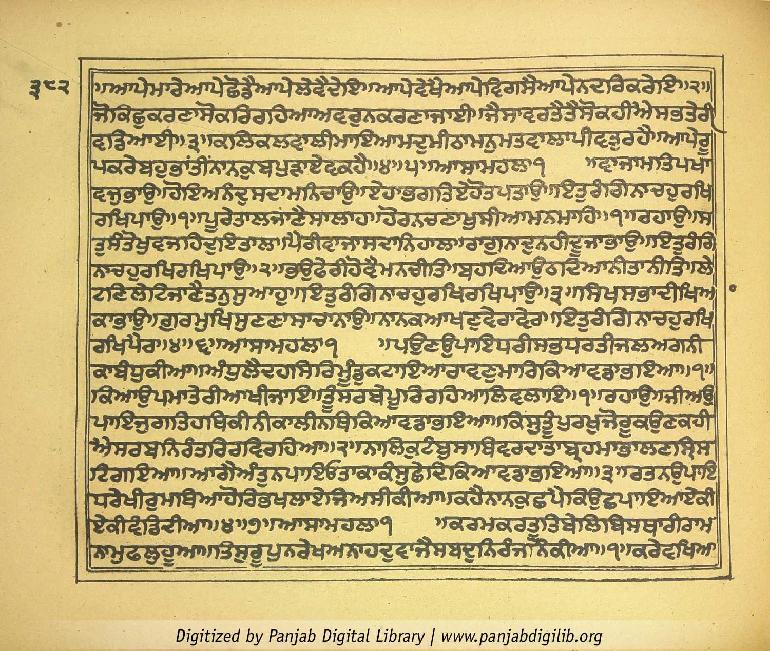 ੩੯੨
॥ਆਪੇਮਾਰੇਆਪੇਛੋਡੈਆਪੇਲੇਵੈਦੇਇ॥ਆਪੇਵੇਖੈਆਪੇਵਿਗਸੈਆਪੇਨਦਰਿਕਰੇਇ॥੨॥
ਜੋਕਿਛੁਕਰਣਾਸੋਕਰਿਰਹਿਆਅਵਰੁਨਕਰਣਾਜਾਈ॥ਜੈਸਾਵਰਤੈਤੈਸੋਕਹੀਐਸਭਤੇਰੀ
ਵਡਿਆਈ॥੩॥ਕਲਿਕਲਵਾਲੀਮਾਇਆਮਦੁਮੀਠਾਮਨੁਮਤਵਾਲਾਪੀਵਤੁਰਹੈ॥ਆਪੇਰੂ
ਪਕਰੇਬਹੁਭਾਂਤੀਂਨਾਨਕੁਬਪੁੜਾਏਵਕਹੈ॥੪॥੫॥ਆਸਾਮਹਲਾ੧ ॥ਵਾਜਾਮਤਿਪਖਾ
ਵਜੁਭਾਉ॥ਹੋਇਅਨੰਦੁਸਦਾਮਨਿਚਾਉ॥ਏਹਾਭਗਤਿਏਹੋਤਪਤਾਉ॥ਇਤੁਰੰਗਿਨਾਚਹੁਰਖਿ
ਰਖਿਪਾਉ॥੧॥ਪੂਰੇਤਾਲਜਾਣੈਸਾਲਾਹ॥ਹੋਰੁਨਚਣਾਖੁਸੀਆਮਨਮਾਹਿ॥੧॥ਰਹਾਉ॥ਸ
ਤੁਸੰਤੋਖੁਵਜਹਿਦੁਇਤਾਲ॥ਪੈਰੀਵਾਜਾਸਦਾਨਿਹਾਲ॥ਰਾਗੁਨਾਦੁਨਹੀਦੂਜਾਭਾਉ॥ਇਤੁਰੰਗਿ
ਨਾਚਹੁਰਖਿਰਖਿਪਾਉ॥੨॥ਭਉਫੇਰੀਹੋਵੈਮਨਚੀਤਿ॥ਬਹਦਿਆਉਠਦਿਆਨੀਤਾਨੀਤਿ॥ਲੇ
ਟਣਿਲੇਟਿਜਾਣੈਤਨੁਸੁਆਹੁ॥ਇਤੁਰੰਗਿਨਾਚਹੁਰਖਿਰਖਿਪਾਉ॥੩॥ਸਿਖਸਭਾਦੀਖਿਆ
ਕਾਭਾਉ॥ਗੁਰਮੁਖਿਸੁਣਣਾਸਾਚਾਨਾਉ॥ਨਾਨਕਆਖਣੁਵੇਰਾਵੇਰ॥ਇਤੁਰੰਗਿਨਾਚਹੁਰਖਿ
ਰਖਿਪੈਰ॥੪॥੬॥ਆਸਾਮਹਲਾ੧ ॥ਪਉਣੁਉਪਾਇਧਰੀਸਭਧਰਤੀਜਲਅਗਨੀ
ਕਾਬੰਧੁਕੀਆ॥ਅੰਧੁਲੈਦਹਸਿਰਿਮੂੰਡੁਕਟਾਇਆਰਾਵਣੁਮਾਰਿਕਿਆਵਡਾਭਇਆ॥੧॥
ਕਿਆਉਪਮਾਤੇਰੀਆਖੀਜਾਇ॥ਤੂੰਸਰਬੇਪੂਰਿਰਹਿਆਲਿਵਲਾਇ॥੧॥ਰਹਾਉ॥ਜੀਅਉ
ਪਾਇਜੁਗਤਿਹਥਿਕੀਨੀਕਾਲੀਨਥਿਕਿਆਵਡਾਭਇਆ॥ਕਿਸੁਤੂੰਪੁਰਖੁਜੋਰੂਕਉਣਕਹੀ
ਐਸਰਬਨਿਰੰਤਰਿਰਵਿਰਹਿਆ॥੨॥ਨਾਲਿਕੁਟੰਬੁਸਾਥਿਵਰਦਾਤਾਬ੍ਰਹਮਾਭਾਲਣਸ੍ਰਿਸ
ਟਿਗਇਆ॥ਆਗੈਅੰਤੁਨਪਾਇਓਤਾਕਾਕੰਸੁਛੇਦਿਕਿਆਵਡਾਭਇਆ॥੩॥ਰਤਨਉਪਾਇ
ਧਰੇਖੀਰੁਮਥਿਆਹੋਰਿਭਖਲਾਏਜਿਅਸੀਕੀਆ॥ਕਹੈਨਾਨਕੁਛਪੈਕਿਉਛਪਾਇਆਏਕੀ
ਏਕੀਵੰਡਿਦੀਆ॥੪॥੭॥ਆਸਾਮਹਲਾ੧ ॥ਕਰਮਕਰਤੂਤਿਬੇਲਿਬਿਸਥਾਰੀਰਾਮ
ਨਾਮੁਫਲੁਹੂਆ॥ਤਿਸੁਰੂਪੁਨਰੇਖਅਨਾਹਦੁਵਾਜੈਸਬਦੁਨਿਰੰਜਨਿਕੀਆ॥੧॥ਕਰੇਵਖਿਆ
Digitized by Panjab Digital Library | www.panjabdigilib.org